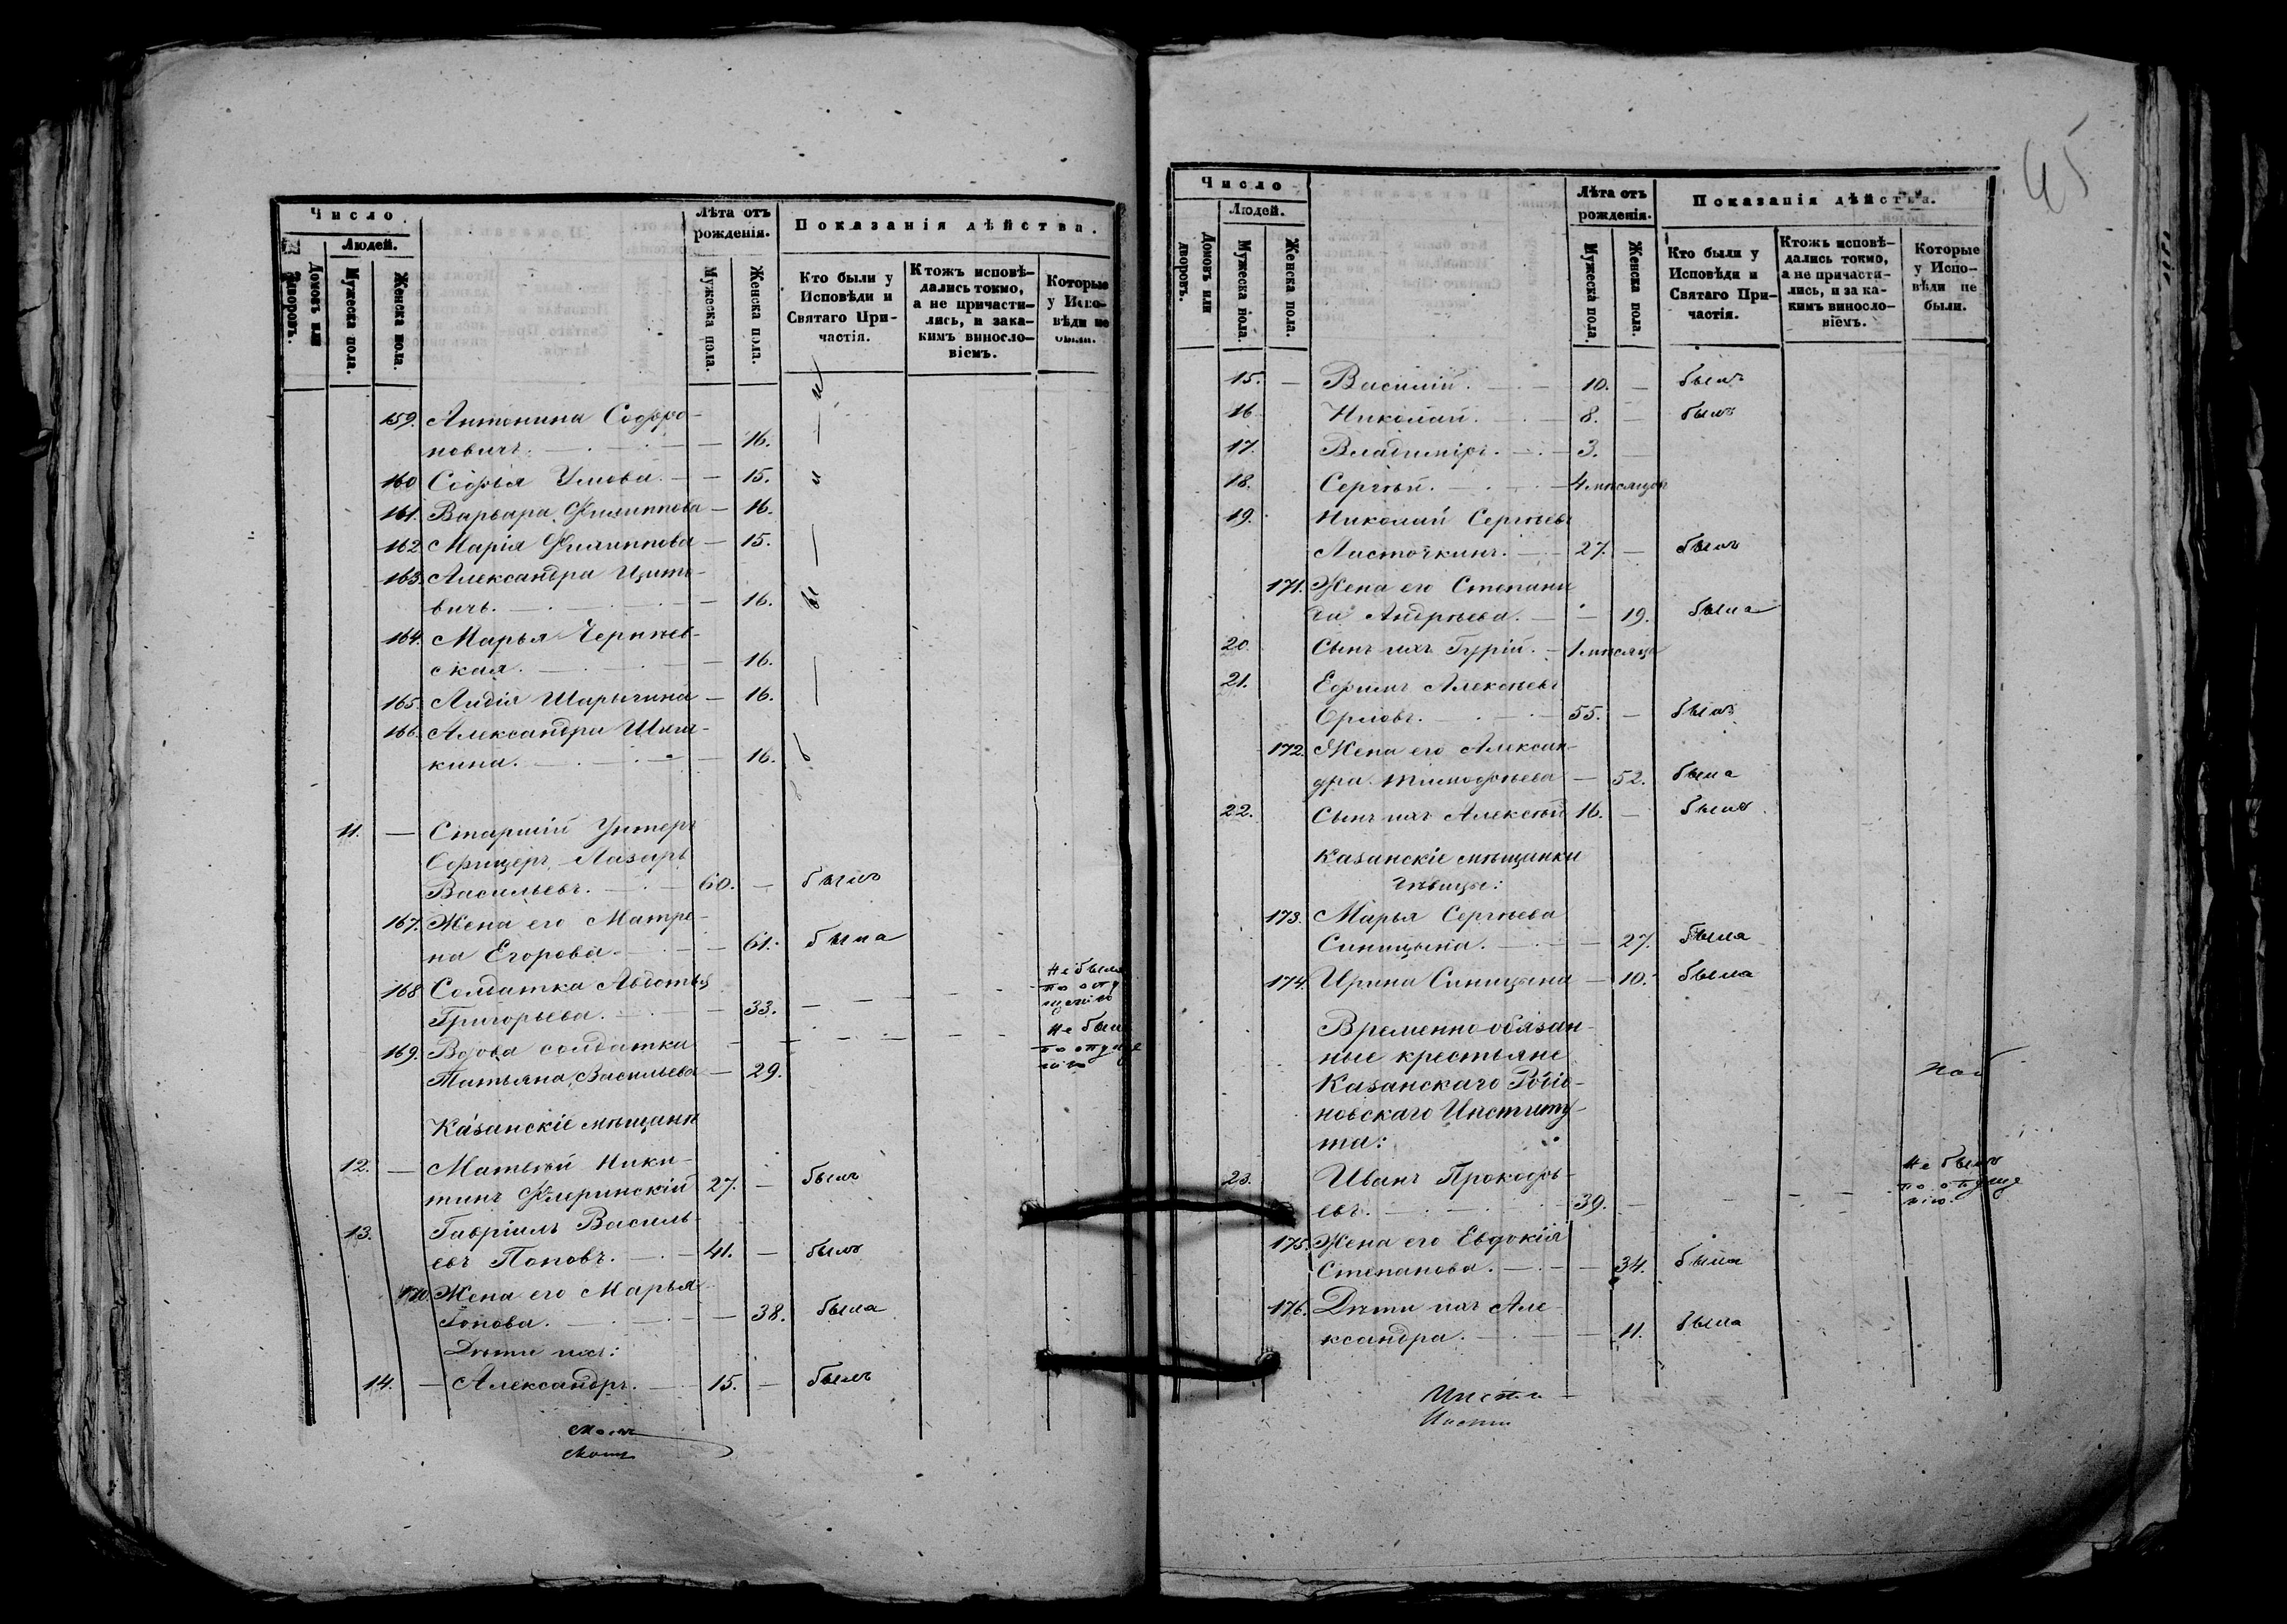 Число
Людей.
Домовъ или дворовъ.
Мужеска пола.
Женска пола.
Лѣта отъ рожденія.
Мужеска пола.
Женска пола.
Показанія дѣйства.
Кто были у Исповѣди и Святаго Причастія.
Ктожъ исповѣдались токмо, а не причастились, и за какимъ винословіемъ.
Которые у Исповѣди не были.
159. Антонина Софро-
новичъ. — 16.
160 Софья Умова. — 15.
161. Варвара Филиппова — 16.
162 Марія Филиппова — 15.
163. Александра Цито-
вичъ. — 16.
164. Марья Черняев-
ская. — 16.
165. Лидія Шарыгина — 16.
166. Александра Шиш-
кина. — 16.
11. — Старшій Унтеръ
Офицеръ Лазарь
Васильевъ. — 60. — былъ
167. Жена его Матре-
на Егорова. — 61. была
168 Солдатка Авдотья
Григорьева. — 33. — не была по опущенію
169. Вдова солдатка
Татьяна Васильева — 29. не была по опущенію
Казанскіе мѣщане
12. — Матвѣй Ники-
тинъ 27. — былъ
13. Гавріилъ Василь-
евъ Поповъ. — 41. — былъ
170. Жена его Марья
Попова. — 38. была
Дѣти ихъ:
14. — Александръ. — 15. — былъ
45
Число
Людей.
Домовъ или дворовъ.
Мужеска пола.
Женска пола.
Лѣта отъ рожденія.
Мужеска пола.
Женска пола.
Показанія дѣйства.
Кто были у Исповѣди и Святаго Причастія.
Ктожъ исповѣдались токмо, а не причастились, и за какимъ винословіемъ.
Которые у Исповѣди не были.
15. — Василій. — 10. — былъ
16 Николай. — 8. — былъ
17. Владиміръ. — 3. —
18. Сергѣй. — 4 мѣсяцовъ
19. Николай Сергѣевъ
Ласточкинъ. — 27. — былъ
171. Жена его Степани-
да Андрѣева. — 19. была
20. Сынъ ихъ Гурій. — 1 мѣсяца
21. Ефимъ Алексѣевъ
Орловъ. — 55. — былъ
172. Жена его Алексан-
дра Тимофѣева — 52. была
22. Сынъ ихъ Алексѣй 16. — былъ
Казанскіе мѣщанки
дѣвицы:
173. Марья Сергѣева
Синицына. — 27. была
174. Ирина Синицына — 10. была
Временно-обязан-
ные крестьяне
Казанскаго Родіо-
новскаго Институ-
та:
23. Иванъ Прокофь-
евъ. — 39. — не былъ по опущенію.
175. Жена его Евдокія
Степанова. — 34. была
176. Дѣти ихъ Але-
ксандра. — 11. была